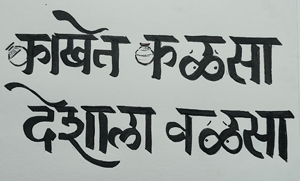 काखेत कळसा
देशाला वळसा